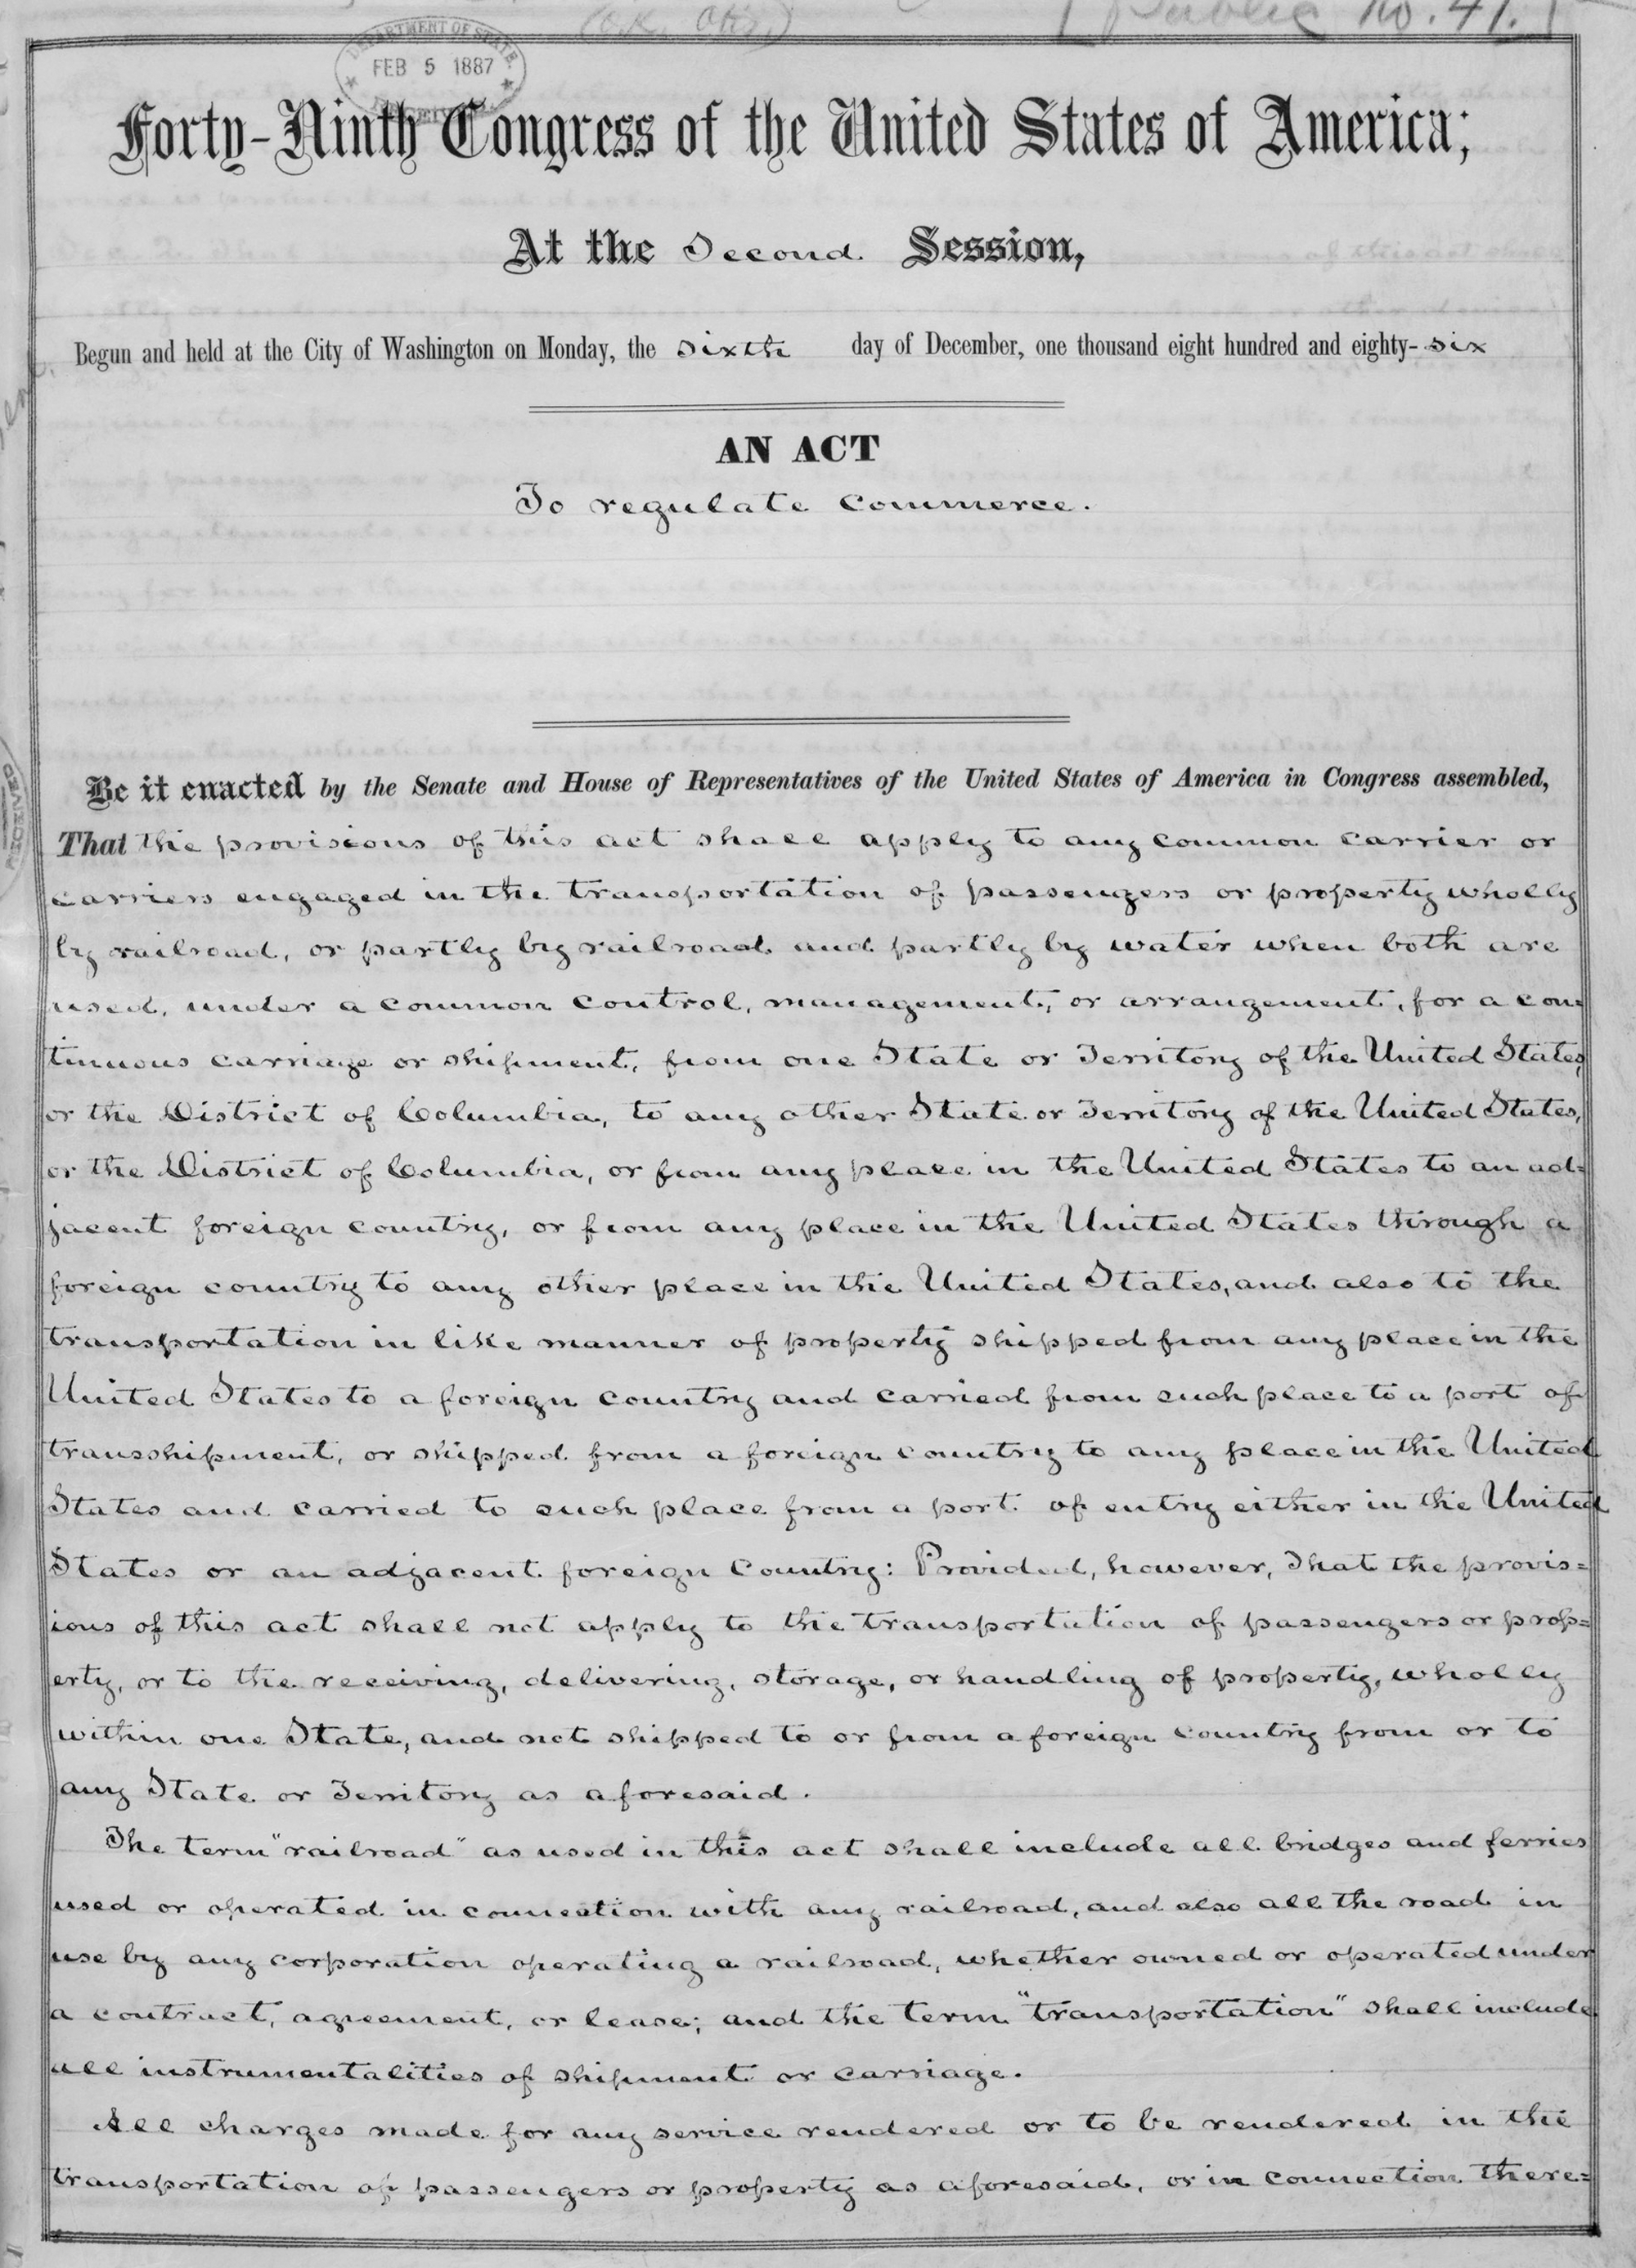 (O.K. Otis.)
[Public No. 41.]
DEPARTMENT OF STATE
FEB 5 1887
Forty-Ninth Congress of the United States of America;
At the Second Session,
Begun and held at the City of Washington on Monday, the sixth day of December, one thousand eight hundred and eighty-six
AN ACT
To regulate commerce.
Be it enacted by the Senate and House of Representatives of the United States of America in Congress assembled,
That the provisions of this act shall apply to any common carrier or
carriers engaged in the transportation of passengers or property wholly
by railroad, or partly by railroad and partly by water when both are
used, under a common control, management, or arrangement, for a con=
tinuous carriage or shipment, from one State or Territory of the United States,
or the District of Columbia, to any other State or Territory of the United States,
or the District of Columbia, or from any place in the United States to an ad=
jacent foreign country, or from any place in the United States through a
foreign country to any other place in the United States, and also to the
transportation in like manner of property shipped from any place in the
United States to a foreign country and carried from such place to a port of
transshipment, or shipped from a foreign country to any place in the United
States and carried to such place from a port of entry either in the United
States or an adjacent foreign country: Provided, however, That the provis=
ions of this act shall not apply to the transportation of passengers or prop=
erty, or to the receiving, delivering, storage, or handling of property, wholly
within one State, and not shipped to or from a foreign country from or to
any State or Territory as aforesaid.
The term "railroad" as used in this act shall include all bridges and ferries
used or operated in connection with any railroad, and also all the road in
use by any corporation operating a railroad, whether owned or operated under
a contract, agreement, or lease; and the term "transportation" shall include
all instrumentalities of shipment or carriage.
All charges made for any service rendered or to be rendered in the
transportation of passengers or property as aforesaid, or in connection there=
RECEIVED